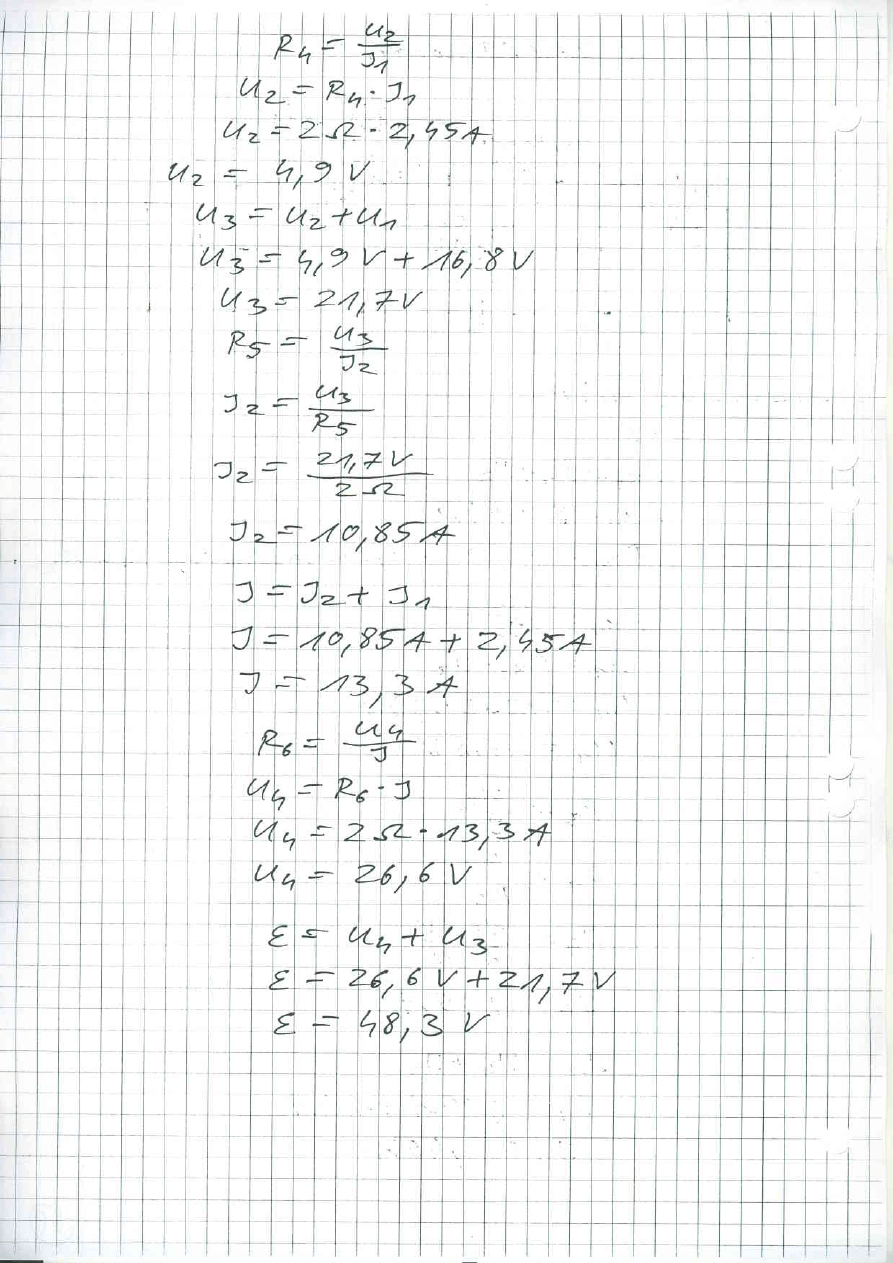 R₄ = U₂/I₁
U₂ = R₄ · I₁
U₂ = 2Ω · 2,45A
U₂ = 4,9 V
U₃ = U₂ + U₁
U₃ = 4,9 V + 16,8 V
U₃ = 21,7 V
R₅ = U₃/I₂
I₂ = U₃/R₅
I₂ = 21,7 V/2Ω
I₂ = 10,85 A
I = I₂ + I₁
I = 10,85 A + 2,45 A
I = 13,3 A
R₆ = U₄/I
U₄ = R₆ · I
U₄ = 2Ω · 13,3 A
U₄ = 26,6 V
ε = U₄ + U₃
ε = 26,6 V + 21,7 V
ε = 48,3 V